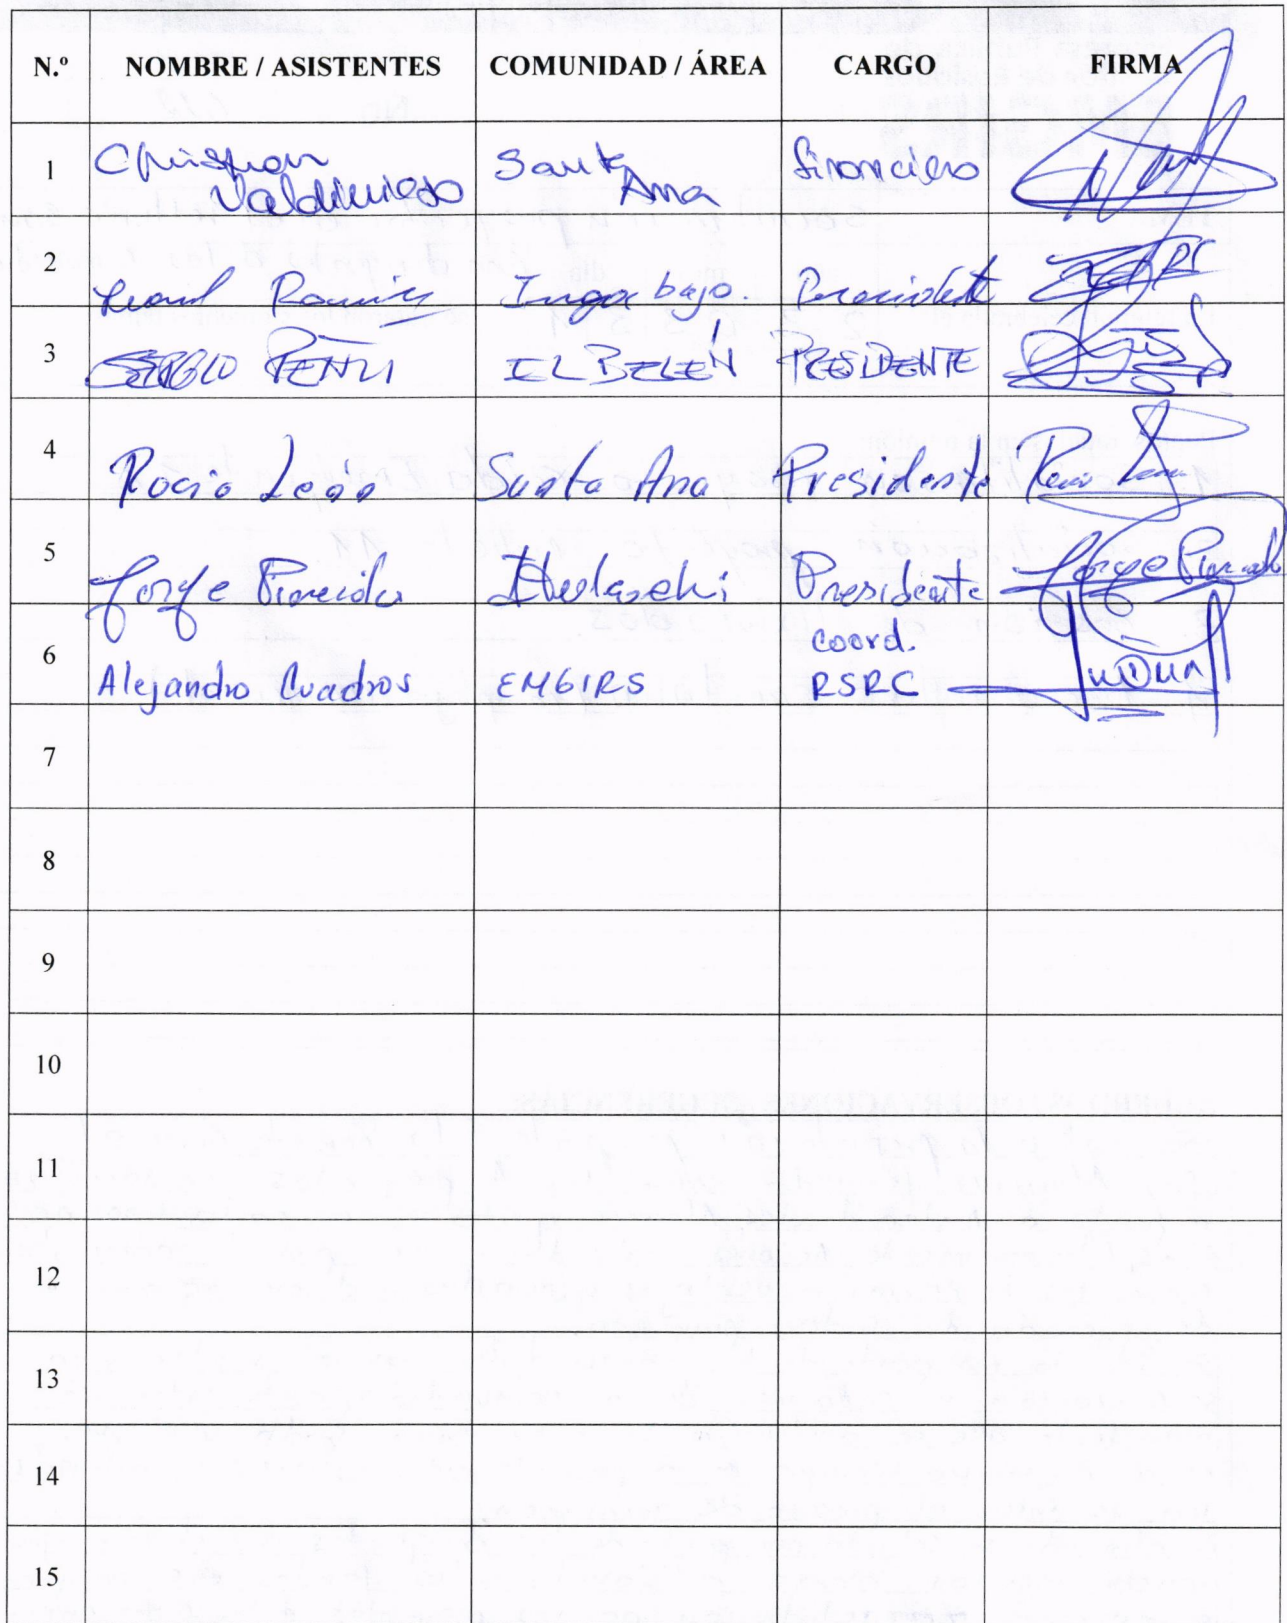 N.º NOMBRE / ASISTENTES COMUNIDAD / ÁREA CARGO FIRMA
1 Christian Valdiviezo Santa Ana financiero
2 Ramirez Inga bajo. Presidente
3 SERGIO EL BELÉN PRESIDENTE
4 Rocio León Santa Ana Presidente Rocio León
5 Jorge Presidente Jorge
6 Alejandro Cuadros EMGIRS coord. RSRC
7
8
9
10
11
12
13
14
15